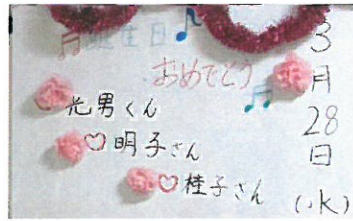 ♫誕生日♪
おめでとう♫
3月28日(水)
光男くん
♡明子さん
♡桂子さん